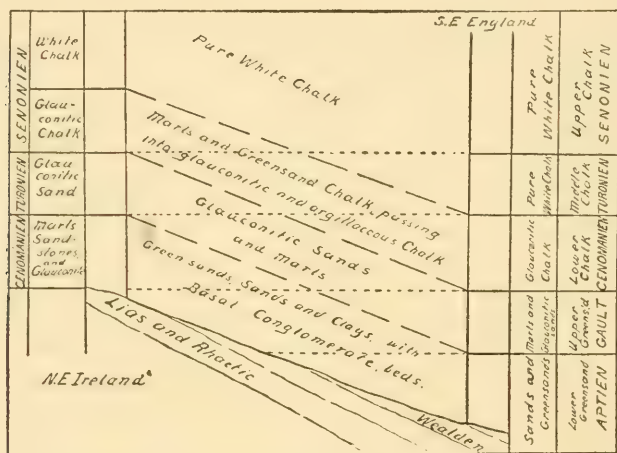 S.E England
SENONIEN
TURONIEN
CENOMANIEN
White
Chalk
Glau-
conitic
Chalk
Glau
conitic
Sand
Marls
Sand-
stones
and
Glauconite
Pure White Chalk
Marls and Greensand Chalk, passing
into glauconitic and argillaceous Chalk
Glauconitic Sands
and Marls
Green sands, Sands and Clays, with
Basal Conglomerate beds.
Lias and Rhaetic
Wealden
N.E Ireland
Pure
White Chalk
Pure
White Chalk
Glauconitic
Chalk
Marls and
Glauconitic
Sands
Sands and
Greensands
Upper
Chalk
Middle
Chalk
Lower
Chalk
Upper
Greens'd
Lower
Greensand
SENONIEN
TURONIEN
CENOMANIEN
GAULT
APTIEN